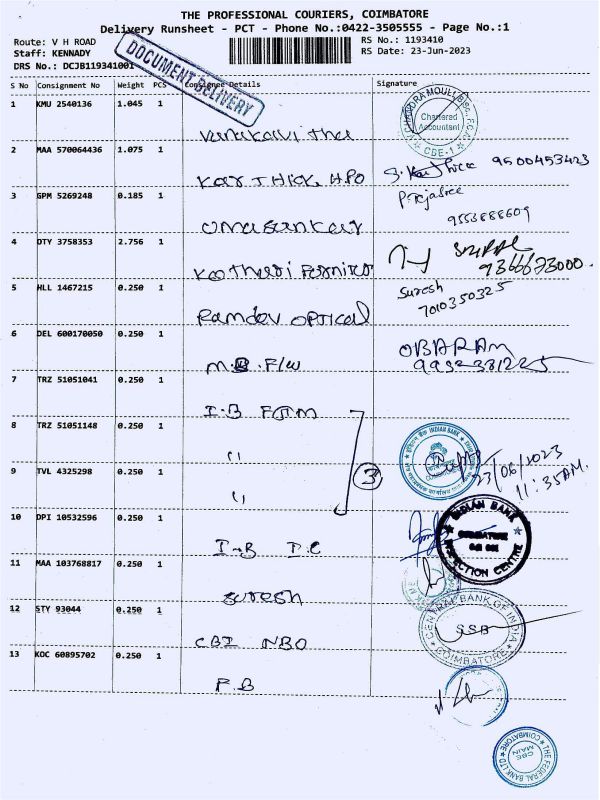 THE PROFESSIONAL COURIERS, COIMBATORE
Delivery Runsheet - PCT - Phone No.:0422-3505555 - Page No.:1
Route: V H ROAD
Staff: KENNADY
DRS No.: DCJB119341001
RS No.: 1193410
RS Date: 23-Jun-2023
DOCUMENT DELIVERY
S No Consignment No Weight PCS Consignee Details Signature
1 KMU 2540136 1.045 1
Chartered
Accountant
CBE-1
2 MAA 570064436 1.075 1
Karthick HPO S. Karthick 9500453423
3 GPM 5269248 0.185 1
Umasankar 9553888609
4 DTY 3758353 2.756 1
9366673000.
5 HLL 1467215 0.250 1
Ramdev optical
Suresh
7010350325
6 DEL 600170050 0.250 1
M.B. F/W
OBARAM
7 TRZ 51051041 0.250 1
I.B
8 TRZ 51051148 0.250 1
"
INDIAN BANK
9 TVL 4325298 0.250 1
"
3
23/06/2023
11:35AM.
10 DPI 10532596 0.250 1
I-B
INDIAN BANK
COIMBATORE
INSPECTION CENTRE
11 MAA 103768817 0.250 1
Suresh
12 STY 93044 0.250 1
CBI NBO
CENTRAL BANK OF INDIA
SSB
COIMBATORE
13 KOC 60895702 0.250 1
F.B
THE FEDERAL BANK LTD
CBE
MAIN
COIMBATORE